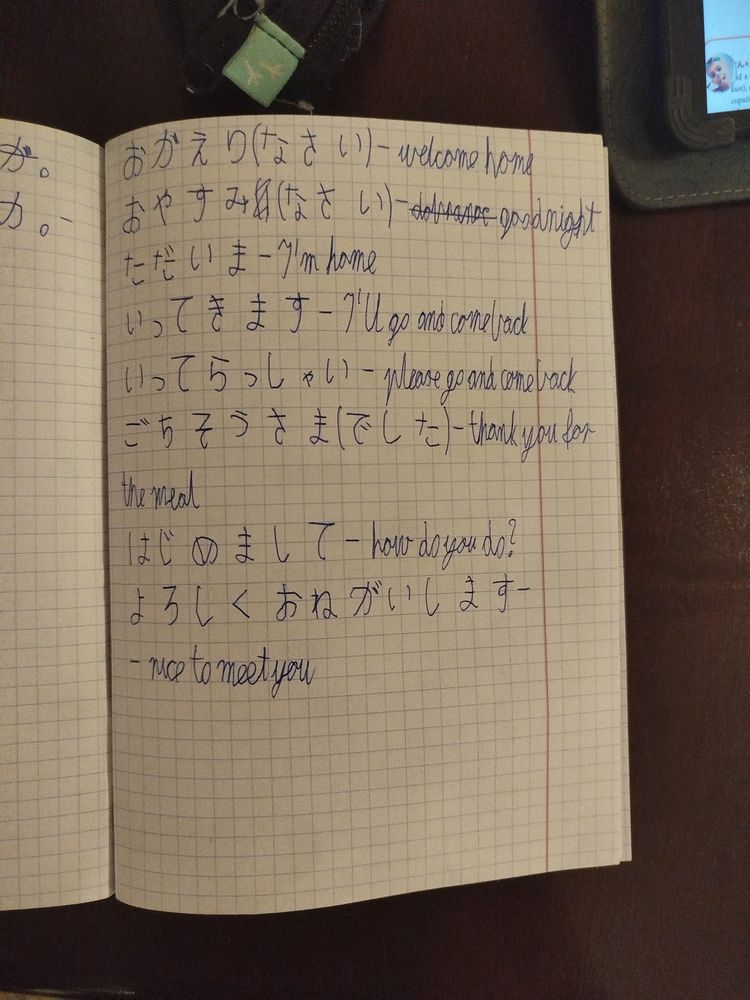 が。
か。-
おがえり(なさい)- welcome home
おやすみ(なさい)- goodnight
ただいま - I'm home
いってきます - I'll go and come back
いってらっしゃい - please go and come back
ごちそうさま(でした) - thank you for
the meal
はじめまして - how do you do?
よろしく おねがいします-
- nice to meet you